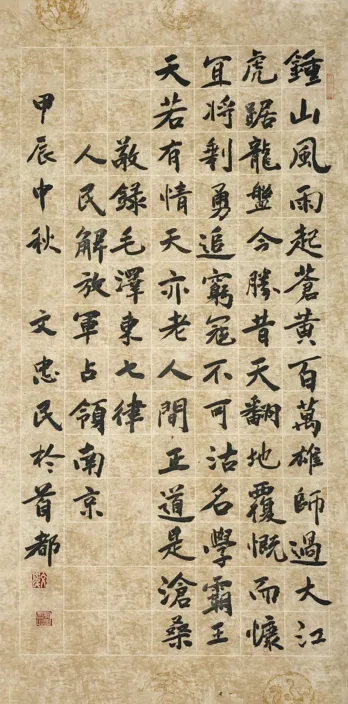 鍾山風雨起蒼黃百萬雄師過大江
虎踞龍盤今勝昔天翻地覆慨而慷
宜将剩勇追窮寇不可沽名學霸王
天若有情天亦老人間正道是滄桑
敬錄毛澤東七律
人民解放軍占領南京
甲辰中秋 文忠民於首都